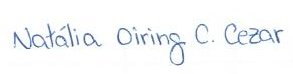 Natália Oiring C. Cezar